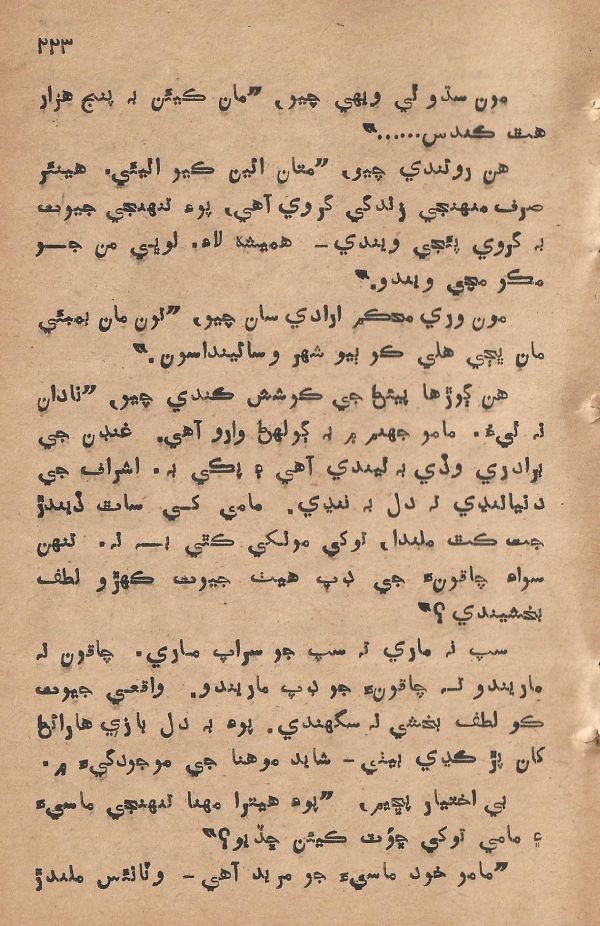 ۲۲۳
مون سڌو ٿي ويهي چيو، ”مان ڪيئن بہ پنج هزار
هٿ ڪندس......“
هن روئندي چيو، ”متان ائين ڪيو اٿيئي. هينئر
صرف منهنجي زندگي گروي آهي، پوءِ تنهنجي جيوت
بہ گروي پئجي ويندي – هميشہ لاءِ. لوڀي من جــو
مڪو مچي ويندو.“
مون وري محڪم ارادي سان چيو، ”تون مان بمبئي
مان ڀڄي هلي ڪو ٻيو شهر وسائينداسون.“
هن ڳوڙها پيئڻ جي ڪوشش ڪندي چيو، ”نادان
نہ ٿيءُ. مامو جهنم ۾ بہ ڳولهڻ وارو آهي. غنڊن جي
برادري وڏي بہ ٿيندي آهي ۽ پڪي بہ. اشراف جي
دنيا ننڍي تہ دل بہ ننڍي. مامي کـي ساٿ ڏيندڙ
جٿ ڪٿ ملندا، توکي مون کي ڪٿي بــہ نہ. تنهن
سواءِ چاقونءَ جي ڊپ هيٺ جيوت ڪهڙو لطف
بخشيندي؟“
سپ نہ ماري تہ سپ جو سراپ مـاري. چاقون نہ
ماريندو تــہ چاقونءَ جو ڊپ ماريندو. واقعـي جيوت
ڪو لطف بخشي نہ سگهندي. پوءِ بہ دل بازي هارائڻ
کان پڙ ڪڍي بيٺي – شايد موهنا جي موجودگيءَ ۾.
بي اختيار پڇيم، ”پوءِ هيترا مهنا تنهنجي ماسيءَ
۽ مامي توکي ڇؤٽ ڪيئن ڇڏيو؟“
”مامو خود ماسيءَ جو مريد آهي – وٽائنس ملندڙ